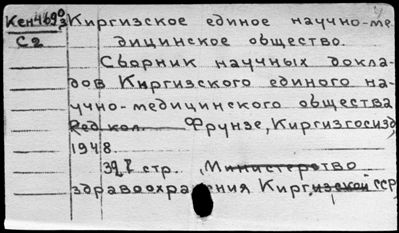 Кен4690з Киргизское единое научно-ме-
С2 дицинское общество.
Сборник научных докла-
дов Киргизского единого на-
учно-медицинского общества
Ред кол. Фрунзе, Киргизгосизд,
1948.
стр. Министерство
здравоохранения Киргизской ССР,